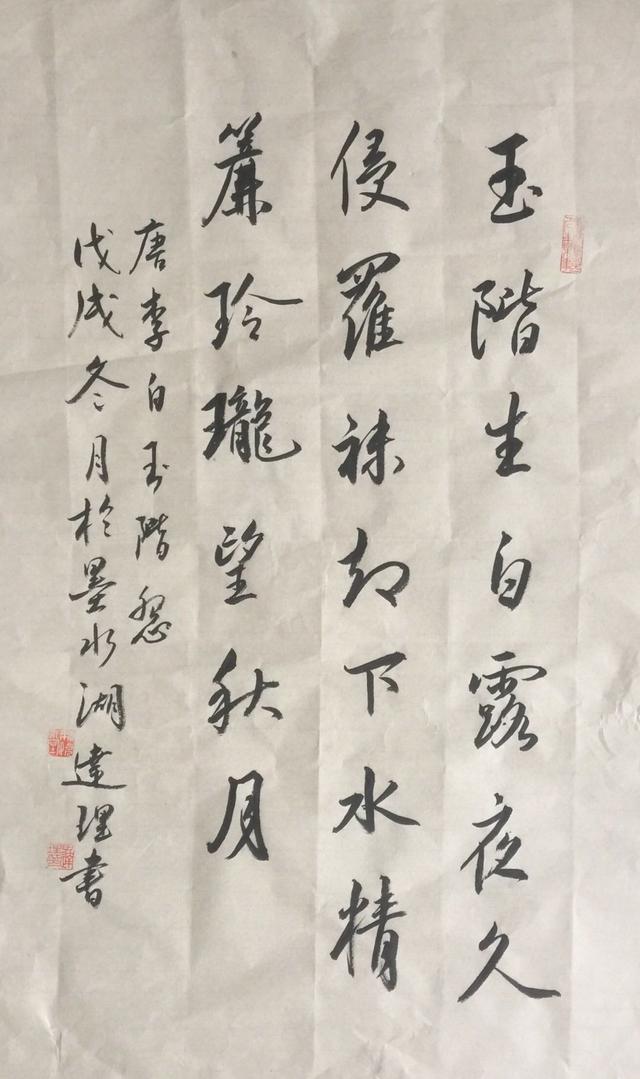 玉階生白露夜久
侵羅袜却下水精
簾玲瓏望秋月
唐李白玉階怨
戊戌冬月於墨水湖達理書